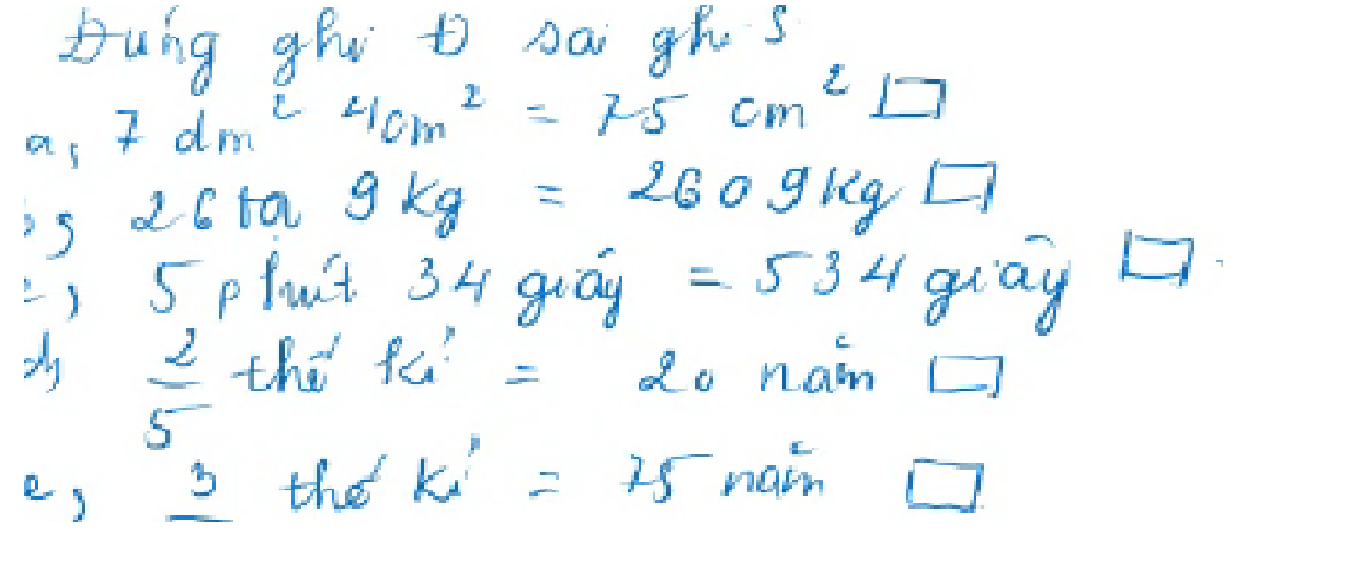 Đúng ghi Đ sai ghi S
a, 7 dm² 4cm² = 75 cm² □
b, 26 tạ 9 kg = 2609 kg □
c, 5 phút 34 giây = 534 giây □
d, 2/5 thế kỉ = 20 năm □
e, 3 thế kỉ = 75 năm □